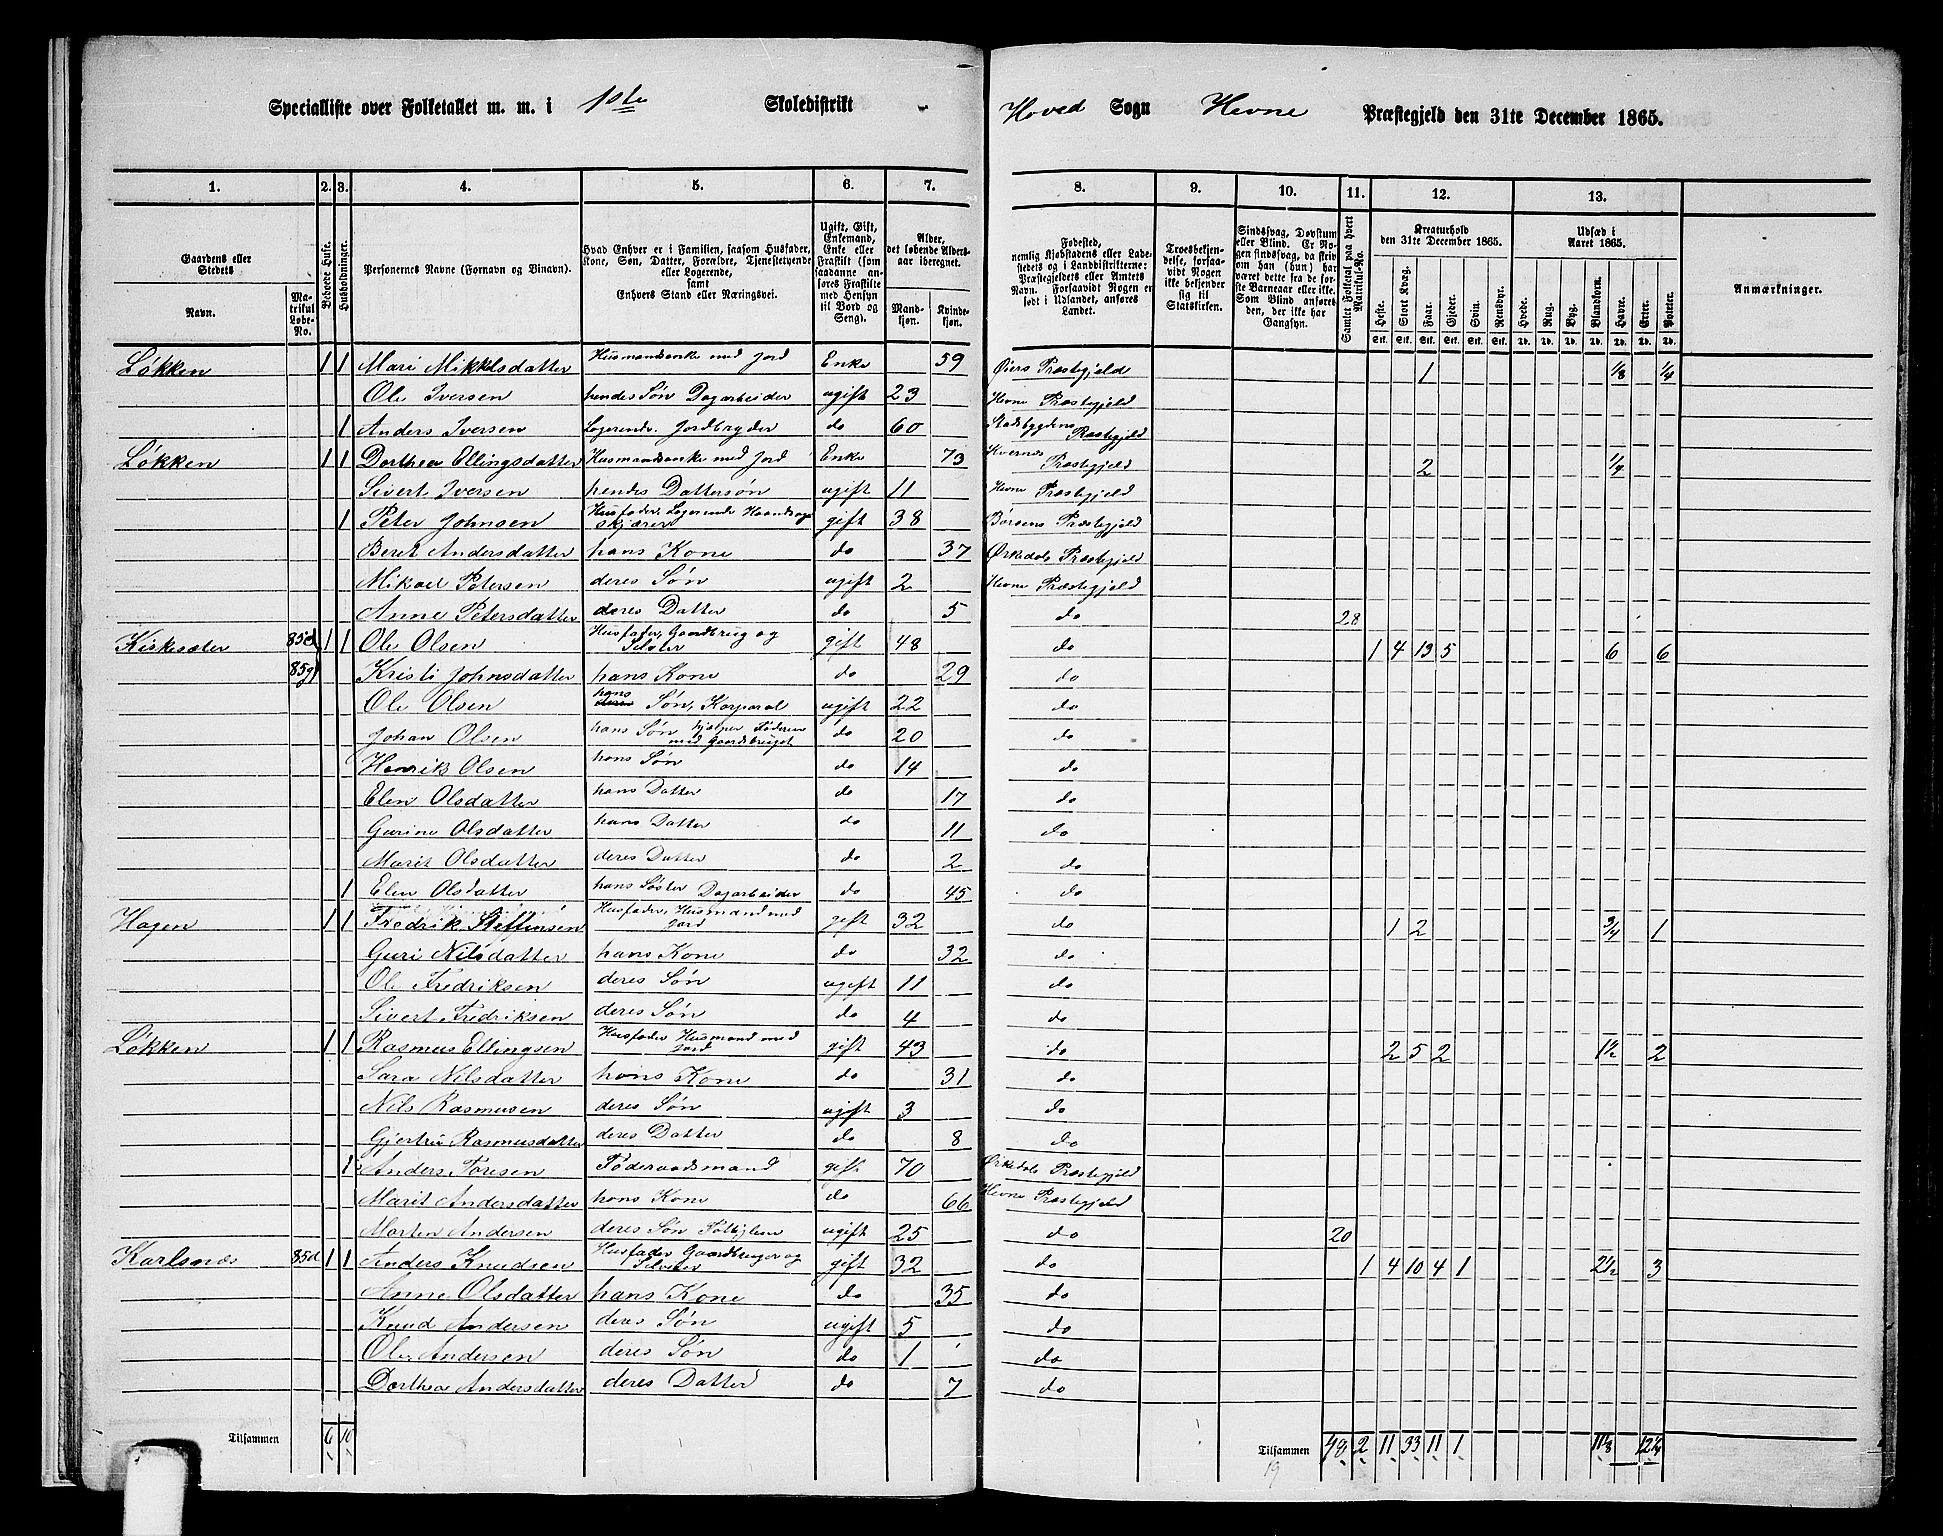 Specialliste over Folketallet m. m. i 1ste Skoledistrikt Hoved Sogn Hevne Præstegjeld den 31te December 1865.
1. 2. 3. 4. 5. 6. 7. 8. 9. 10. 11. 12. 13.
Gaardens eller Stedets
Navn.
Matrikul Løbe-No.
Beboede Huse.
Husholdninger.
Personernes Navne (Fornavn og Binavn).
Hvad Enhver er i Familien, saasom Husfader, Kone, Søn, Datter, Forældre, Tjenestetyende eller Logerende, samt Enhvers Stand eller Næringsvei.
Ugift, Gift, Enkemand, Enke eller Fraskilt (som saadanne anføres Fraskilte med Hensyn til Bord og Seng).
Alder, det løbende Aldersaar iberegnet.
Mandkjøn. Kvindekjøn.
Fødested, nemlig Kjøbstadens eller Ladestedets og i Landdistrikterne: Præstegjeldets eller Amtets Navn. Forsaavidt Nogen er født i Udlandet, anføres Landet.
Troesbekjendelse, forsaavidt Nogen ikke bekjender sig til Statskirken.
Sindssvag, Døvstum eller Blind. Er Nogen sindssvag, da skriv om han (hun) har været dette fra de første Barneaar eller ikke. Som Blind anføres den, der ikke har Gangsyn.
Samlet Folketal paa hvert Matrikul-No.
Kreaturhold den 31te December 1865.
Heste. Stort Kvæg. Faar. Gjeder. Svin. Rensdyr.
Udsæd i Aaret 1865.
Hvede. Rug. Byg. Blandkorn. Havre. Erter. Poteter.
Anmærkninger.
Løkken 1 1 Mari Mikkelsdatter Husmandsenke med Jord Enke 59 Øiers Præstegjeld 1 1/8 1/4
Ole Iversen hendes Søn Dagarbeider ugift 23 Hevne Præstegjeld
1 Anders Iversen Logerende. Jordbryder do 60 Stadsbygdens Præstegjeld
Løkken 1 1 Dorthea Ellingsdatter Husmandsenke med Jord Enke 73 Kvernes Præstegjeld 2 1/4
Sivert Iversen hendes Dattersøn ugift 11 Hevne Præstegjeld
1 Peter Johnsen Husfader, Logerende skjærer gift 38 Børsens Præstegjeld
Beret Andersdatter hans Kone do 37 Ørkedals Præstegjeld
Mikael Petersen deres Søn ugift 2 Hevne Præstegjeld
Anne Petersdatter deres Datter do 5 do 28
Kirkesæter 85d 1 1 Ole Olsen Husfader, Gaardbrug og Selveier gift 48 do 1 4 13 5 6 6
85g Kristi Johnsdatter hans Kone do 29 do
Ole Olsen hans Søn, Korporal ugift 22 do
Johan Olsen hans Søn hjælper Faderen med Gaardsbruget do 20 do
Henrik Olsen hans Søn do 14 do
Elen Olsdatter hans Datter do 17 do
Gurine Olsdatter hans Datter do 11 do
Marit Olsdatter deres Datter do 2 do
1 Elen Olsdatter hans Søster Dagarbeider do 45 do
Hagen 1 1 Fredrik Steffensen Husfader, Husmand med Jord gift 32 do 1 2 3/4 1
Guri Nilsdatter hans Kone do 32 do
Ole Fredriksen deres Søn ugift 11 do
Sivert Fredriksen deres Søn do 4 do
Løkken 1 1 Rasmus Ellingsen Husfader Husmand med Jord gift 43 do 2 5 2 1 1/2 2
Sara Nilsdatter hans Kone do 31 do
Nils Rasmusen deres Søn ugift 3 do
Gjertru Rasmusdatter deres Datter do 8 do
1 Anders Toresen Føderaadsmand gift 70 Ørkedals Præstegjeld
Marit Andersdatter hans Kone do 66 Hevne Præstegjeld
Morten Andersen deres Søn ugift 25 do 20
Karlsnes 85d 1 1 Anders Knudsen Husfader Gaardbruger og Selveier gift 32 do 1 4 10 4 1 2 1/2 3
Anne Olsdatter hans Kone do 35 do
Knud Andersen deres Søn ugift 5 do
Ole Andersen deres Søn do 1 do
Dorthea Andersdatter deres Datter do 7 do
Tilsammen 6 10 Tilsammen 48 2 11 33 11 1 11 1/8 12 1/4
19